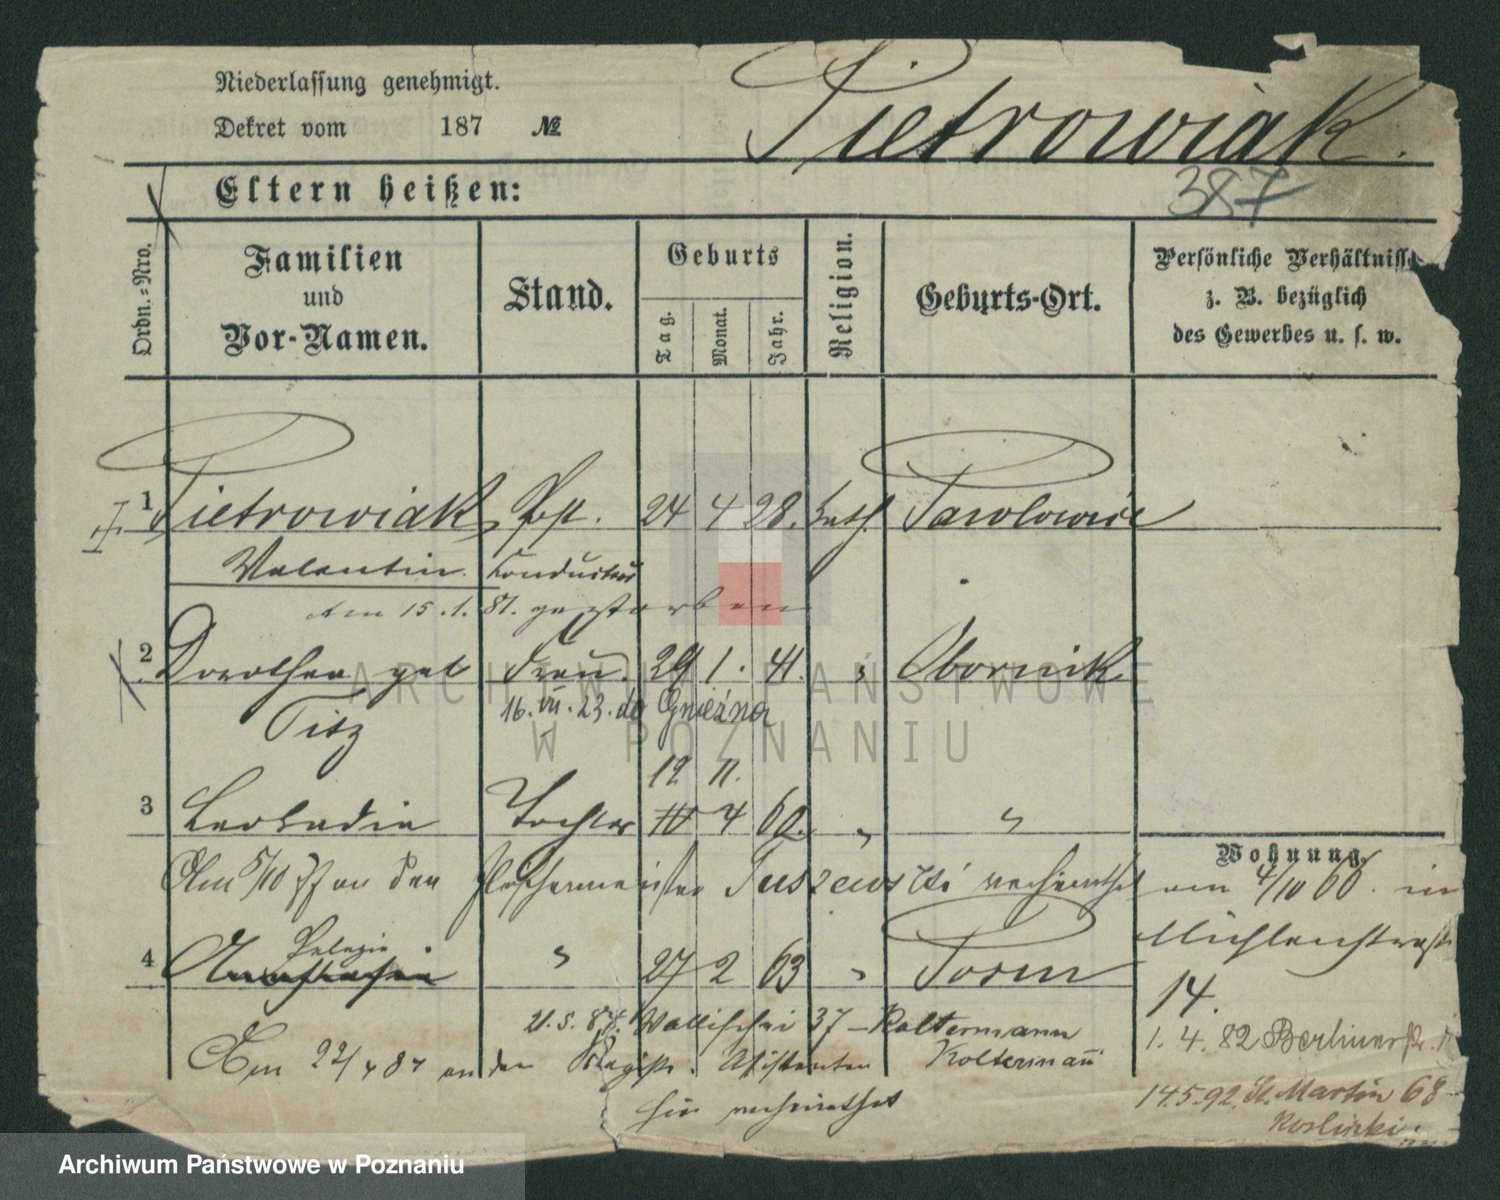 Niederlassung genehmigt.
Dekret vom 187 №
Pietrowiak.
387
Eltern heißen:
Ordn.-Nro.
Familien
und
Vor-Namen.
Stand.
Geburts
Tag.
Monat.
Jahr.
Religion.
Geburts-Ort.
Persönliche Verhältnisse
z. B. bezüglich
des Gewerbes u. s. w.
1 Pietrowiak Post. 24 4 28. kath.
Valentin. Conducteur
am 15.1.81. gestorben
2 Dorothea geb Frau. 29 1. 41. " Obornik
Titz 16.VII.23. do Gniezna
12 11.
3 Leokadia Tochter 4 62. " "
Am 5/10 an den Fleischermeister Tuszewski verheirathet
Wohnung.
am 4/10 66. in
Mühlenstraße
14.
Pelagia
4 " 27 2 63 " Posen
21.5.84. Wallischei 37 - Koltermann
Am 22/4 87 an den Assistenten Koltermann
hier verheirathet
1. 4. 82 Berlinerstr.
14.5.92. St. Martin 68
Koslinki
ARCHIWUM PAŃSTWOWE
W POZNANIU
Archiwum Państwowe w Poznaniu